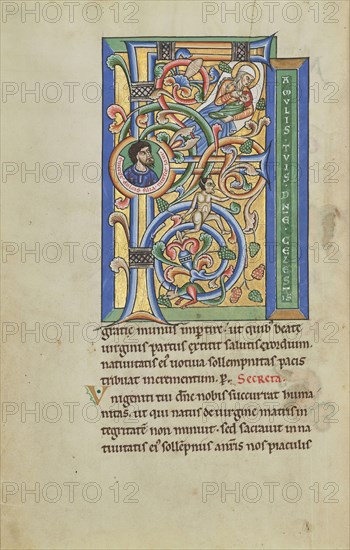 F
AMVLIS TVIS DNE CELESTIS
gratie munus impertire. ut quib beate
uirginis partus extitit salutis exordium.
natiuitatis ei uotiua sollempnitas pacis
tribuat incrementum. p. Secreta.
Vnigeniti tui dne nobis succurrat huma
nitas. ut qui natus de uirgine matris in
tegritatem non minuit. sed sacrauit in na
tiuitatis ei sollempniis nos piaculis
PHOTO 12